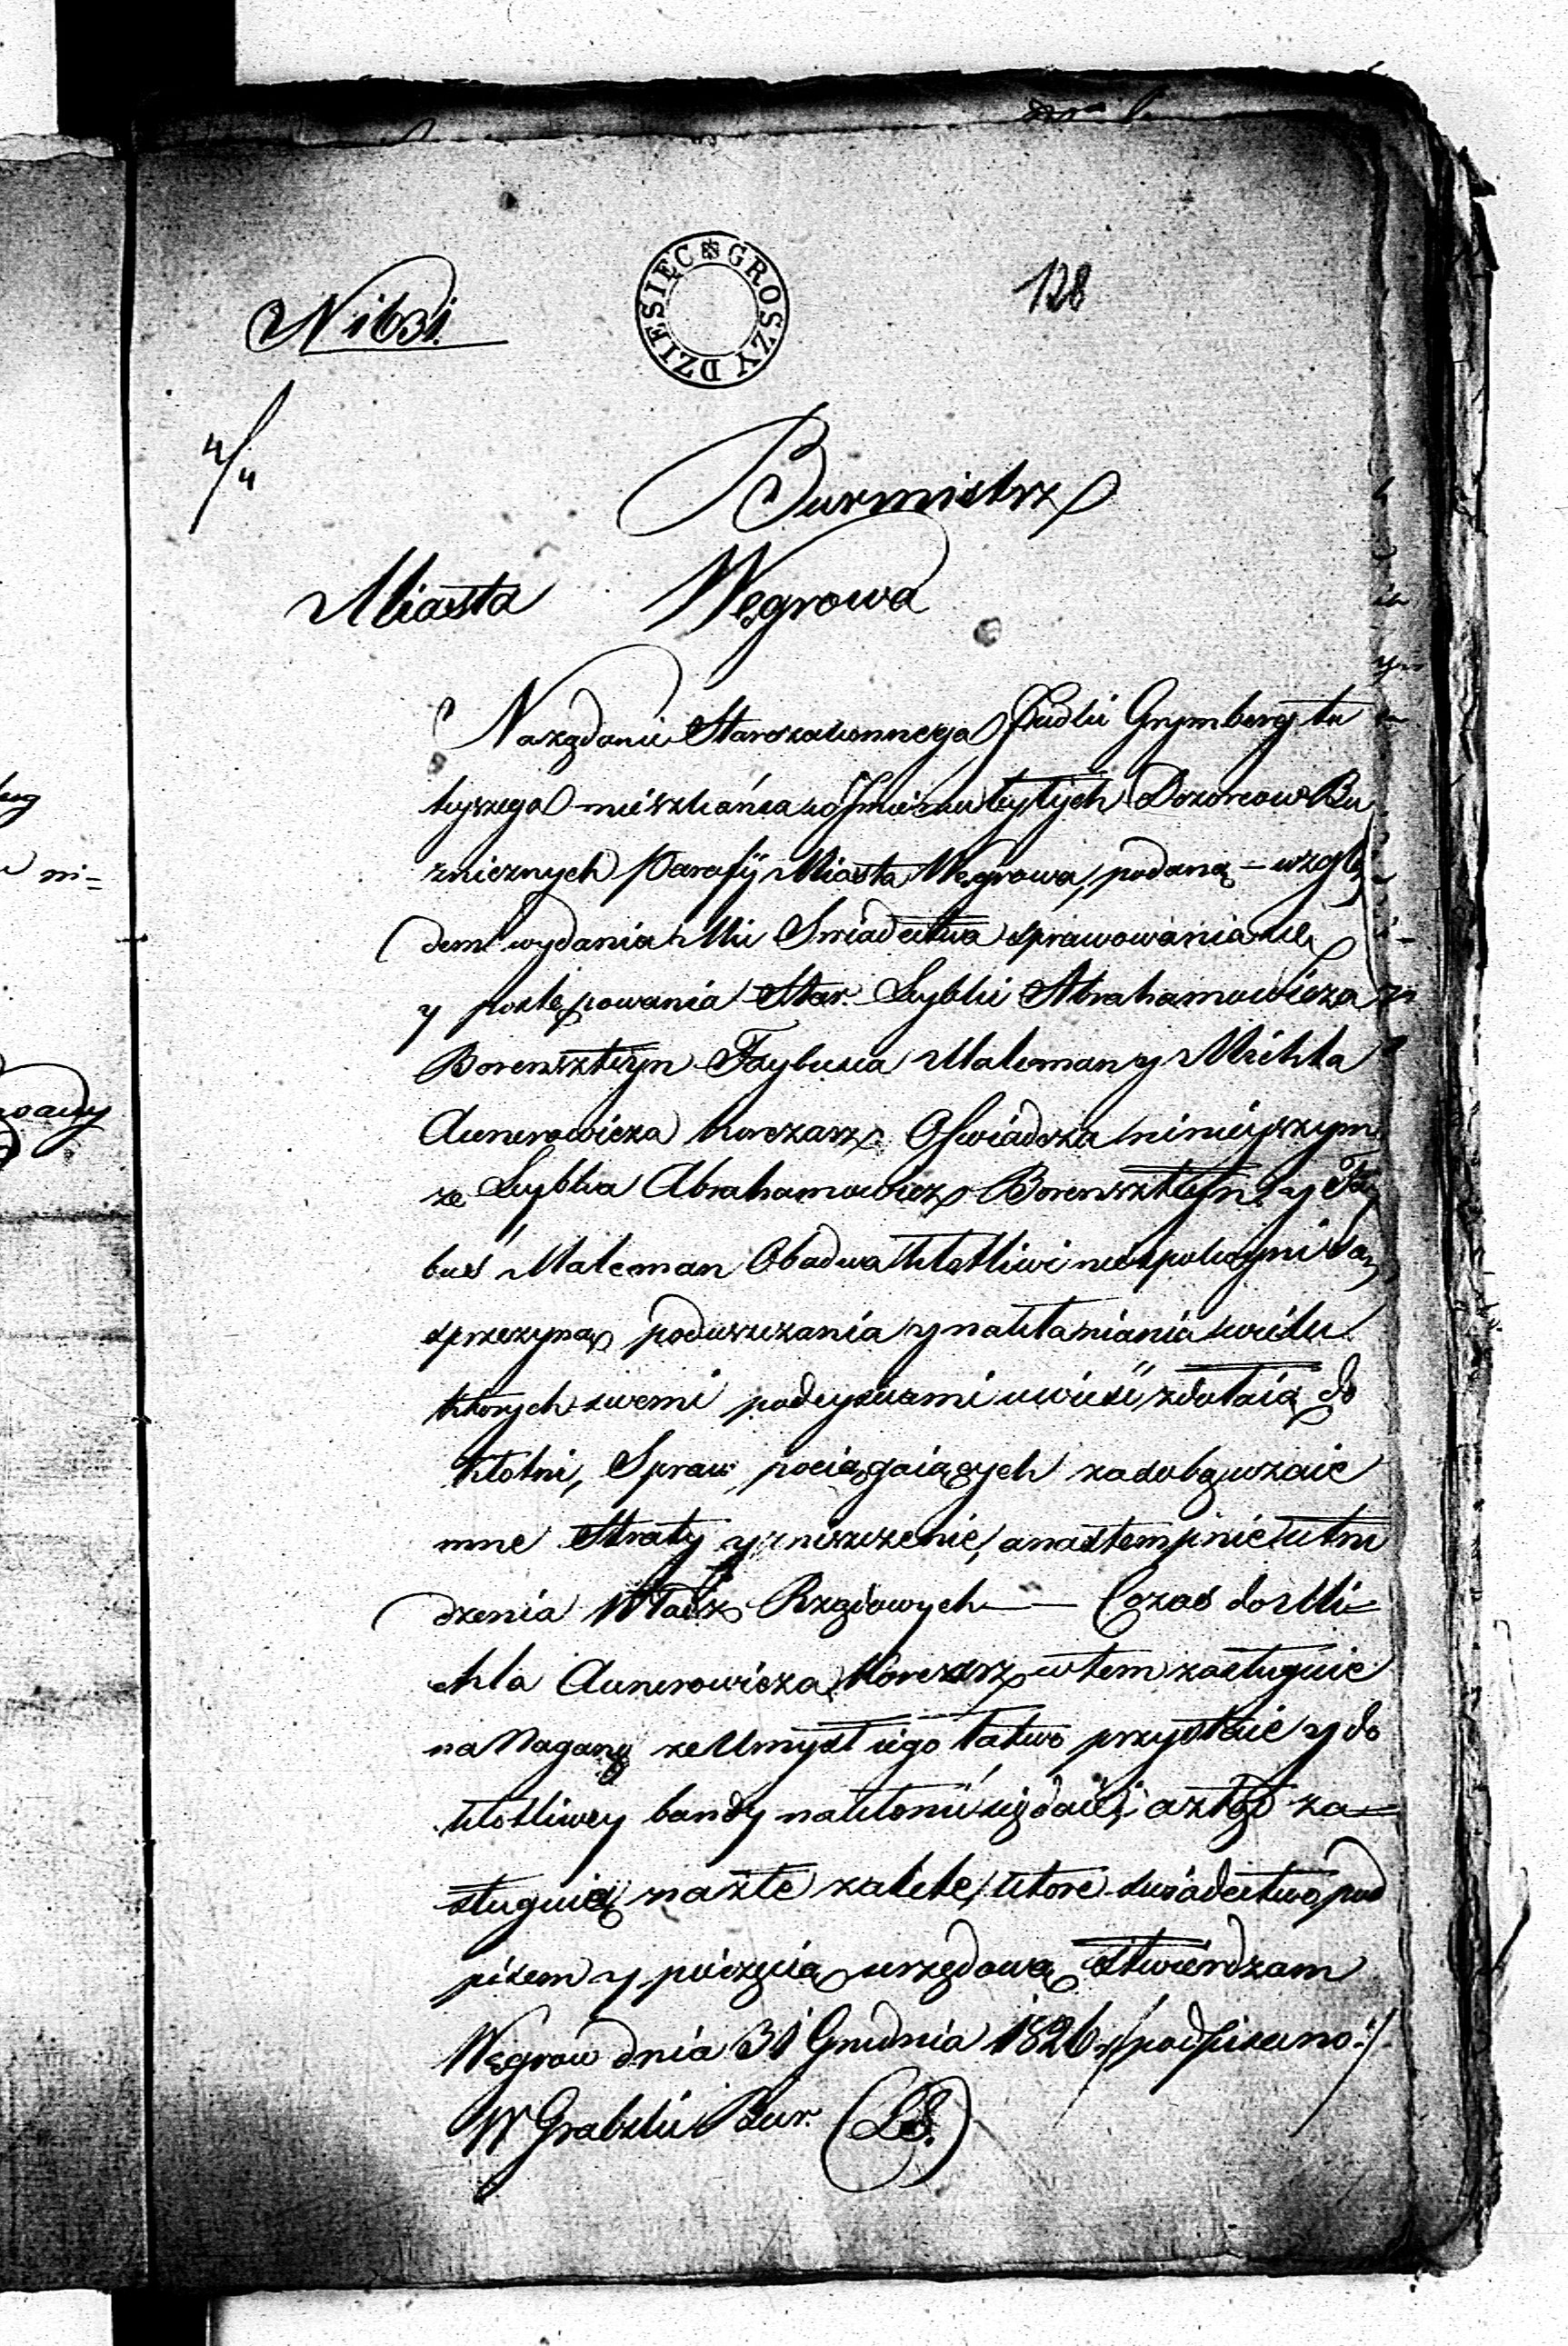 128
N 1631.
DZIESIĘC GROSZY
Burmistrz
Miasta Węgrowa
Na żądanie Starozakonnego Judki Grynberg tu
tyszego mieszkańca Dozorcow Bu
zniczych Parafij Miasta Węgrowa, podaną – wzglę
dem wydania Mu Swiadectwa sprawowania się
y postępowania Star. Leybki Abrahamowicza
Borenszteyn Faybusia Maleman y Michla
Aunerowicza korczarz Oswiadcza ninieyszym
ze Leybka Abrahamowicz Borenszteyn y Fay
bus Maleman Obadwa kłotliwi niespokoyni są
sprezyną poduszczania y nakłaniania wielu
ktorych swemi podeysciami uwieść zdołaią do
kłotni, Spraw pociągaiących za sobą wzaie
mne Straty y zniszczenie, a nastempnie utru
dzenia Władz Rządowych — Co zas do Mi=
chla Aunerowicza Korczarz w tem zasługuie
na Naganę ze Umysł iego łatwo przystaie y do
kłotliwey bandy nakłonić się daie, a ztąd za=
sługuią na złe zalete, ktore swiadectwo pod
pisem y pieczęcią urzędową stwierdzam
Węgrow dnia 31 Grudnia 1826 r /podpisano:/
W Grabski Bur. (L.S.)